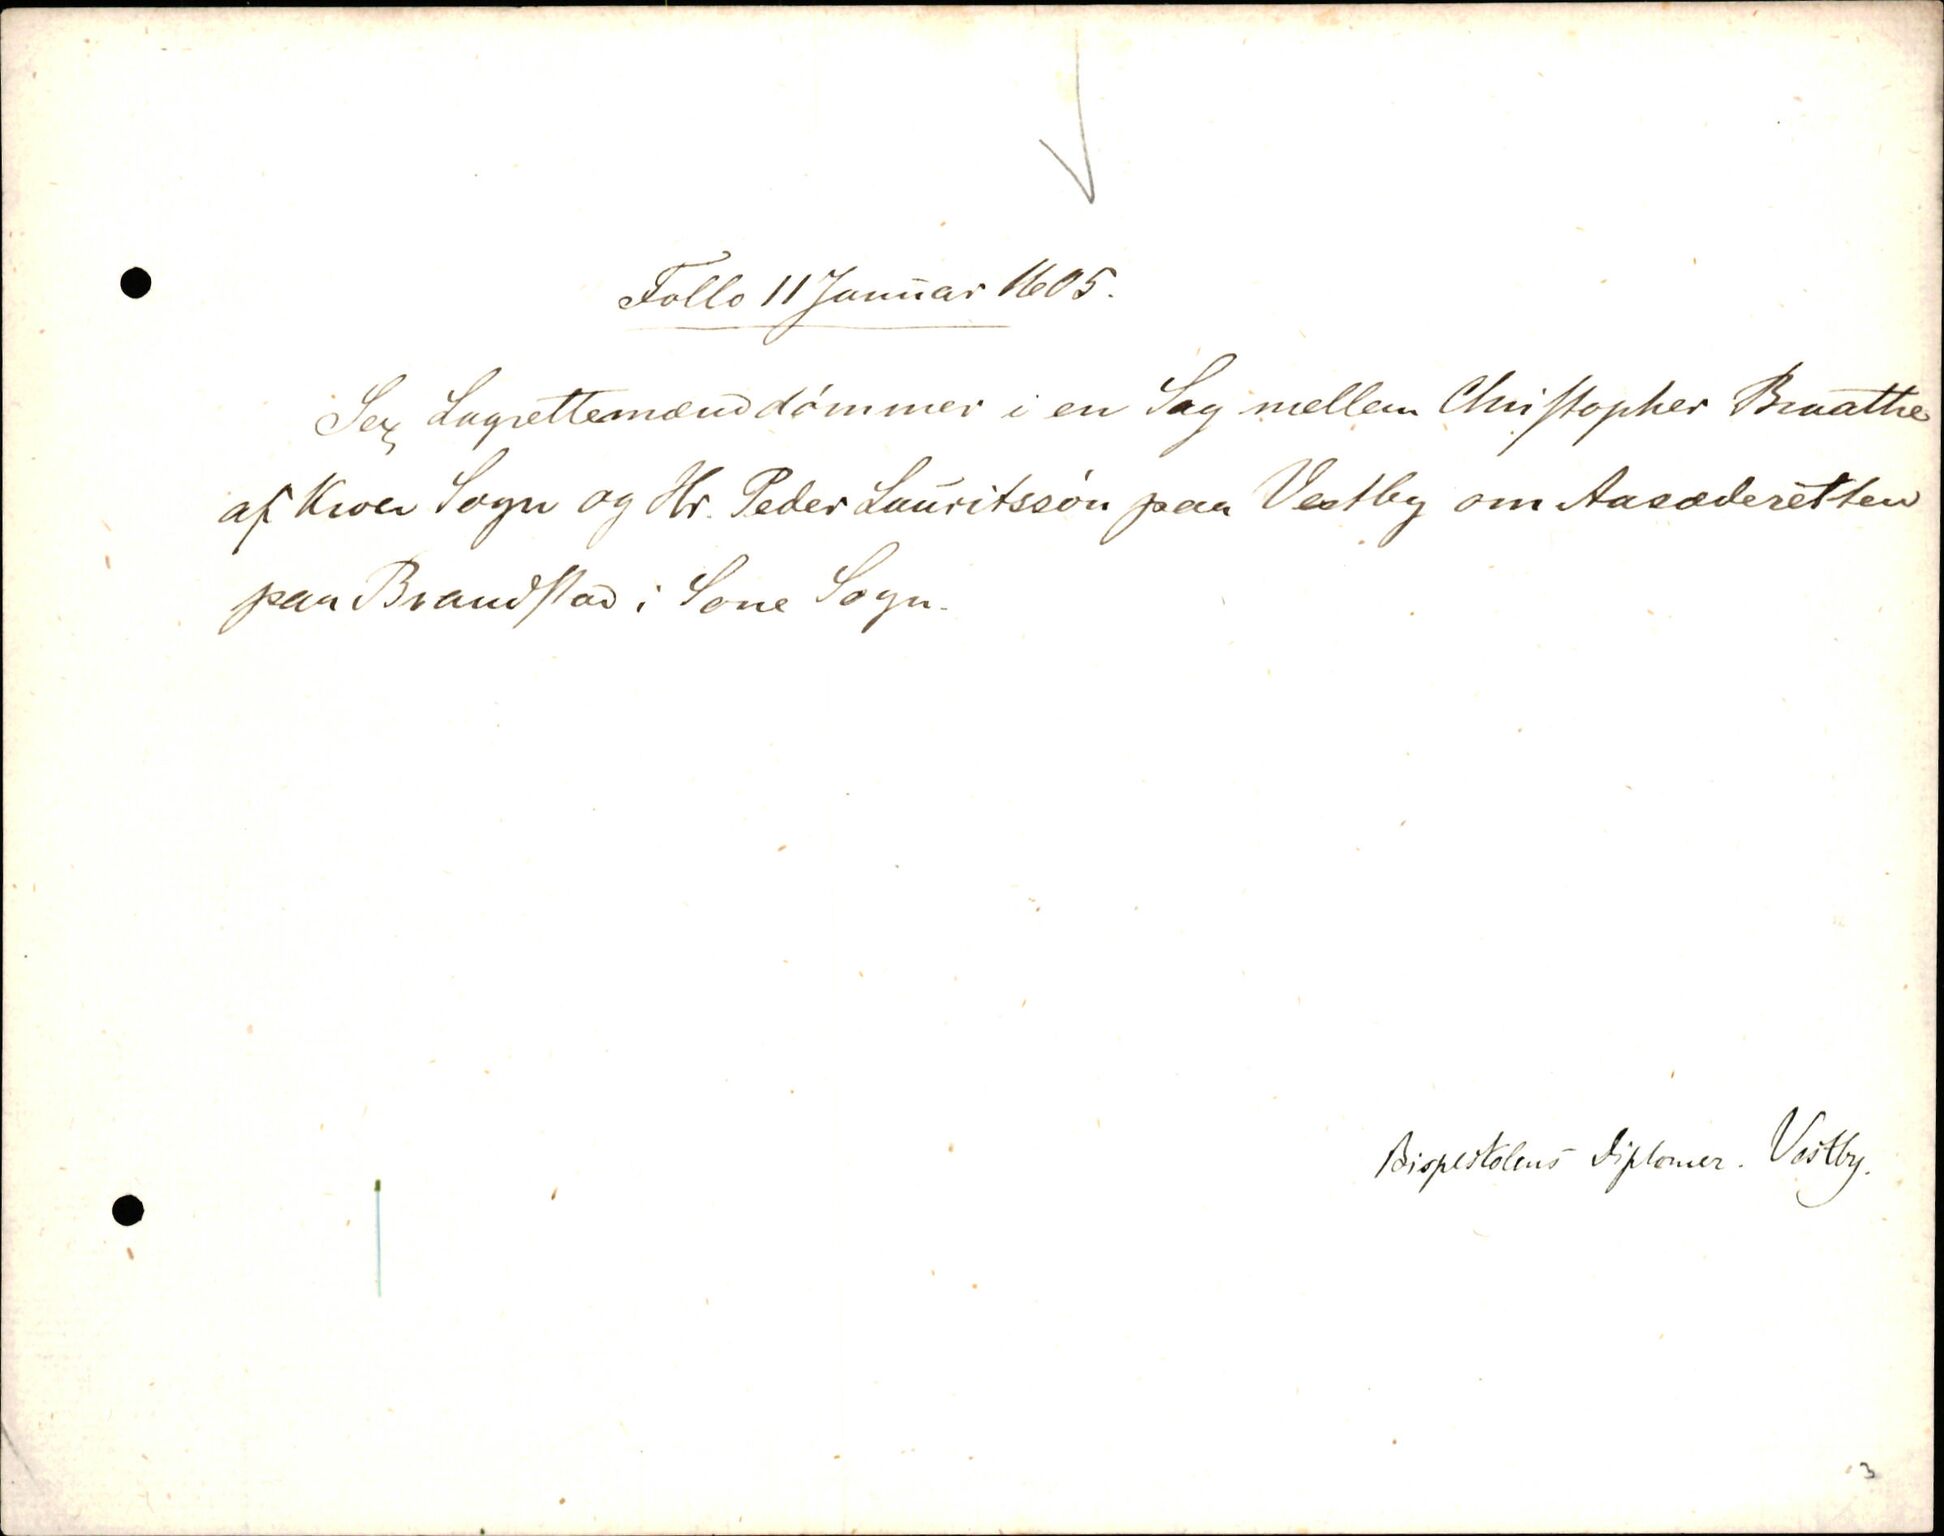 Follo 11 Januar 1605.
Sex Lagrettemænd dömmer i en Sag mellem Christopher Braathe
af Kroer Sogn og Hr. Peder Lauritssön paa Vestby om Aasæderetten
paa Brandstad i Sone Sogn.
Bispestolens Diplomer. Vestby.
3